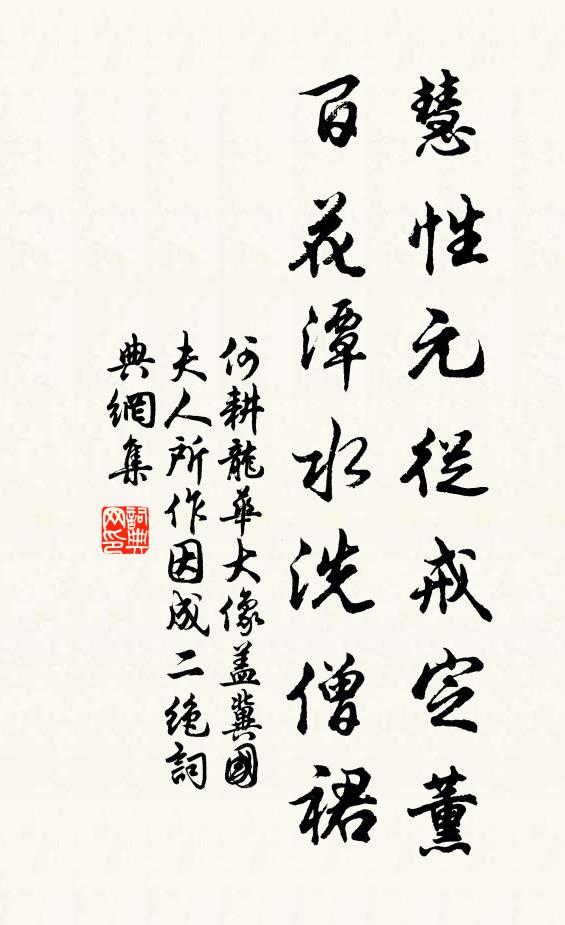 慧性元從戒定薰
百花潭水洗僧裙
何耕龍華大像盖冀國
夫人所作因成二絶詞
典網集
詞典网印